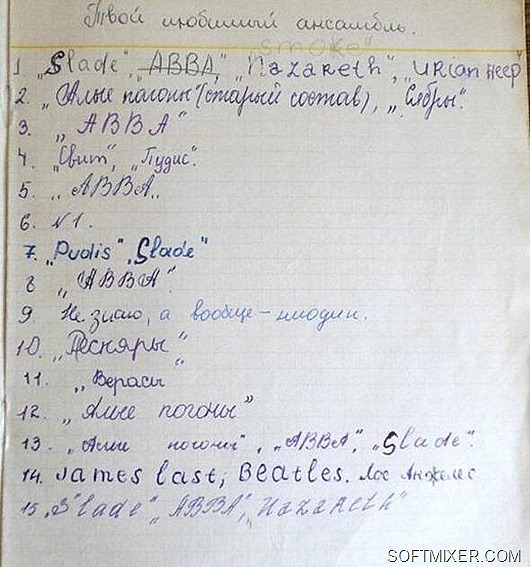 Твой любимый ансамбль.
smoke"
1. „Slade", ABBA", „Nazareth", „URian Heep"
2. „Алые погоны"(старый состав), „Сябры".
3. „ABBA"
4. „Свит", „Пудис".
5. „ABBA„
6. N1.
7. „Pudis", Slade"
8 „ABBA".
9. Не знаю, а вообще-
10. „Песняры„
11. „Верасы
12. „Алые погоны"
13. „Алые погоны", „ABBA", „Slade".
14. James last, Beatles. Лос Анжелес
15 „Slade" „ABBA", „Nazareth"
SOFTMIXER.COM